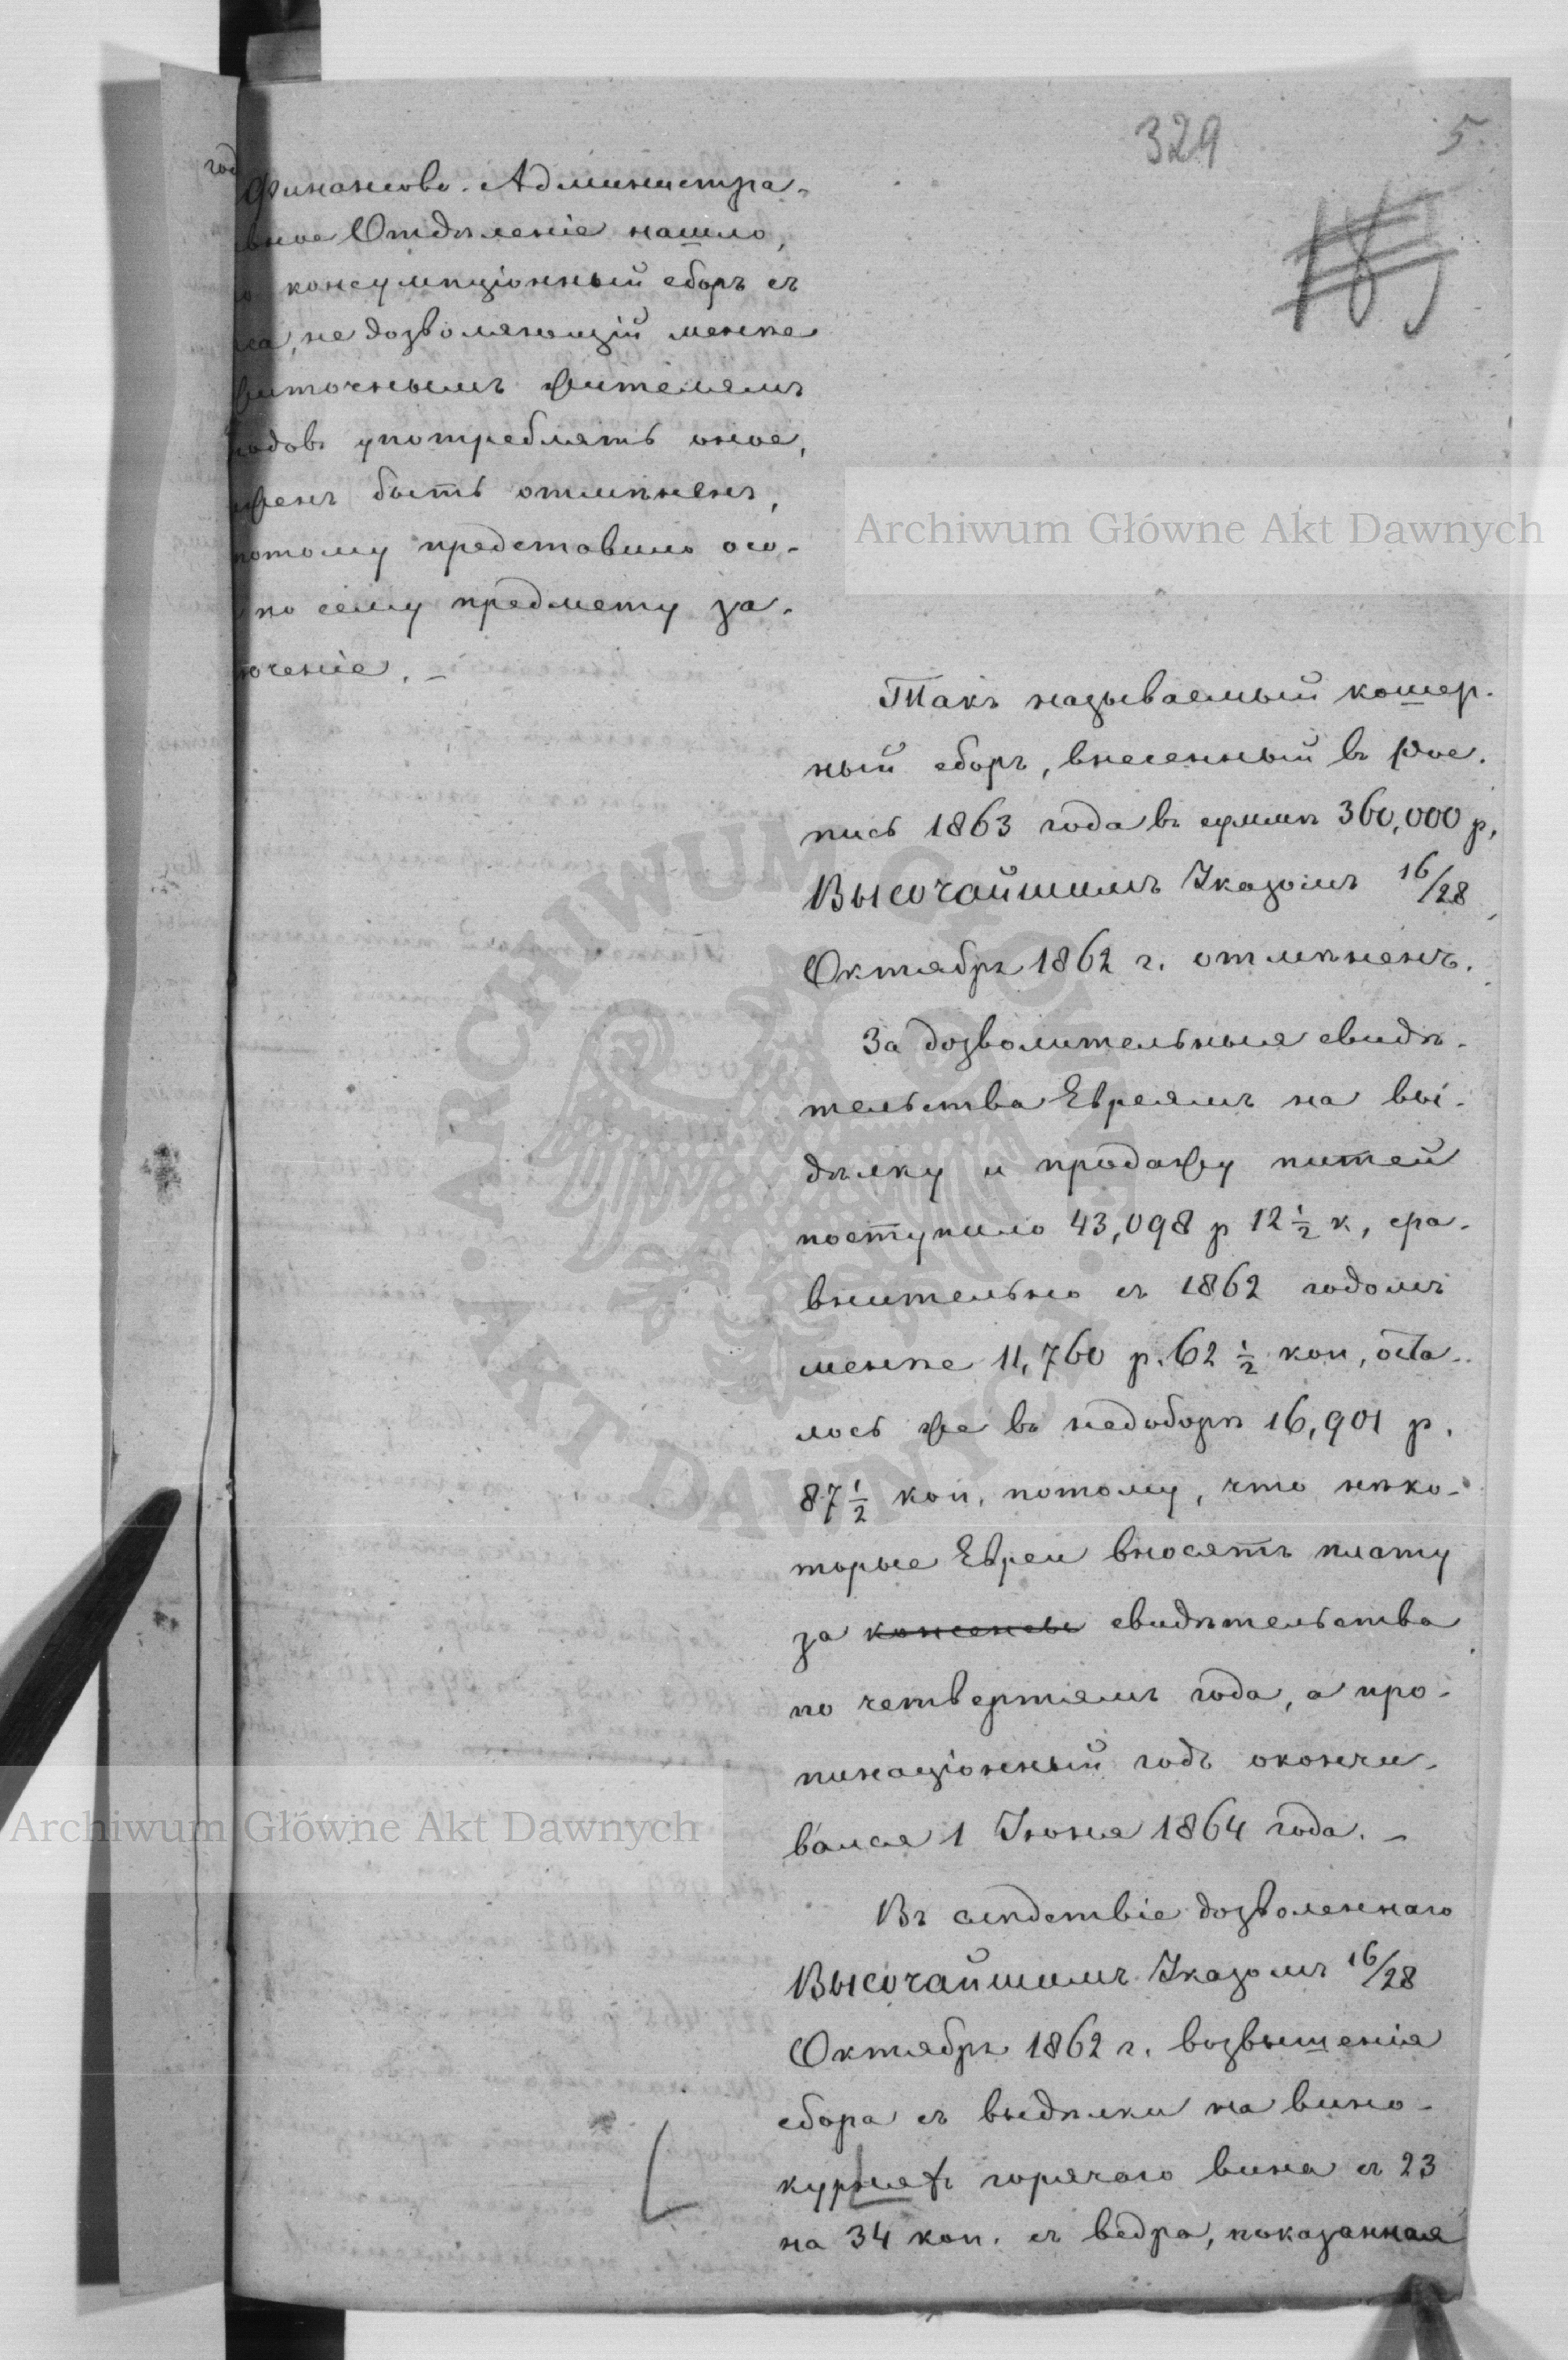 329
5
185
год
Финансово-Администра-
вное Отдѣленіе нашло,
консумпціонный сборъ съ
са, не дозволяющій менѣе
житочнымъ жителямъ
родовъ употреблять оное,
женъ быть отмѣненъ,
потому представило осо-
по сему предмету за-
юченіе. —
Такъ называемый кошер-
ный сборъ, внесенный въ Рос-
пись 1863 года въ суммѣ 360,000 р,
Высочайшимъ Указомъ 16/28
Октября 1862 г. отмѣненъ.
За дозволительныя свидѣ-
тельства Евреямъ на вы-
дѣлку и продажу питей
поступило 43,098 р 12 1/2 к, сра-
внительно съ 1862 годомъ
менѣе 11,760 р. 62 1/2 коп, оста-
лось же въ недоборѣ 16,901 р.
87 1/2 коп. потому, что нѣко-
торые Евреи вносятъ плату
за консенсы свидѣтельства
по четвертямъ года, а про-
пинаціонный годъ окончи-
вался 1 Іюня 1864 года. —
Въ слѣдствіе дозволеннаго
Высочайшимъ Указомъ 16/28
Октября 1862 г. возвышенія
сбора съ выдѣлки на вино-
курняхъ горячаго вина съ 23
на 34 коп. съ ведра, показанная
Archiwum Główne Akt Dawnych
Archiwum Główne Akt Dawnych
ARCHIWUM GŁÓWNE · AKT DAWNYCH ·